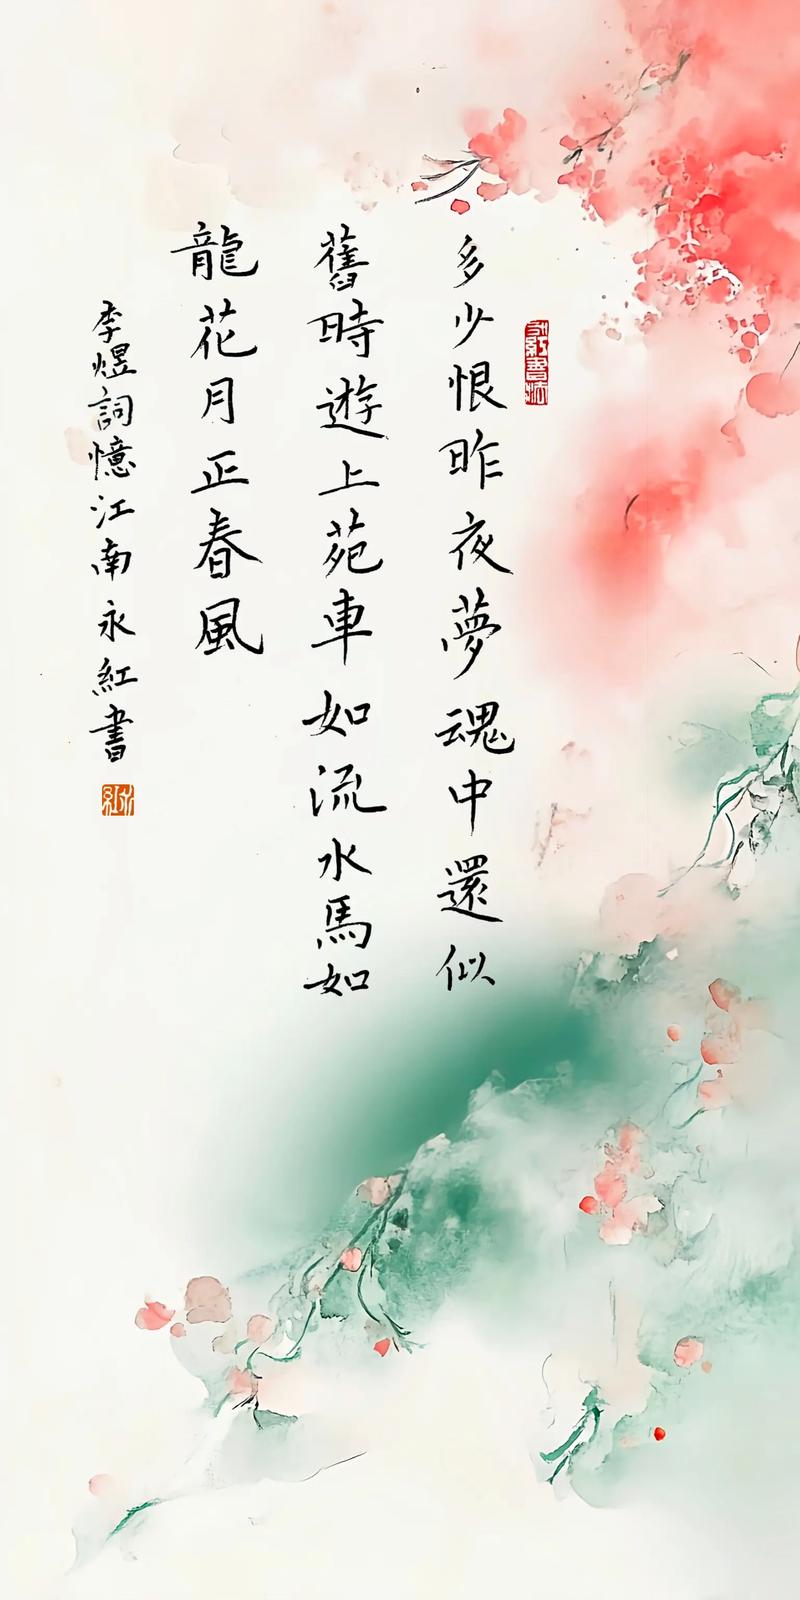 多少恨昨夜夢魂中還似
舊時遊上苑車如流水馬如
龍花月正春風
李煜詞憶江南永紅書